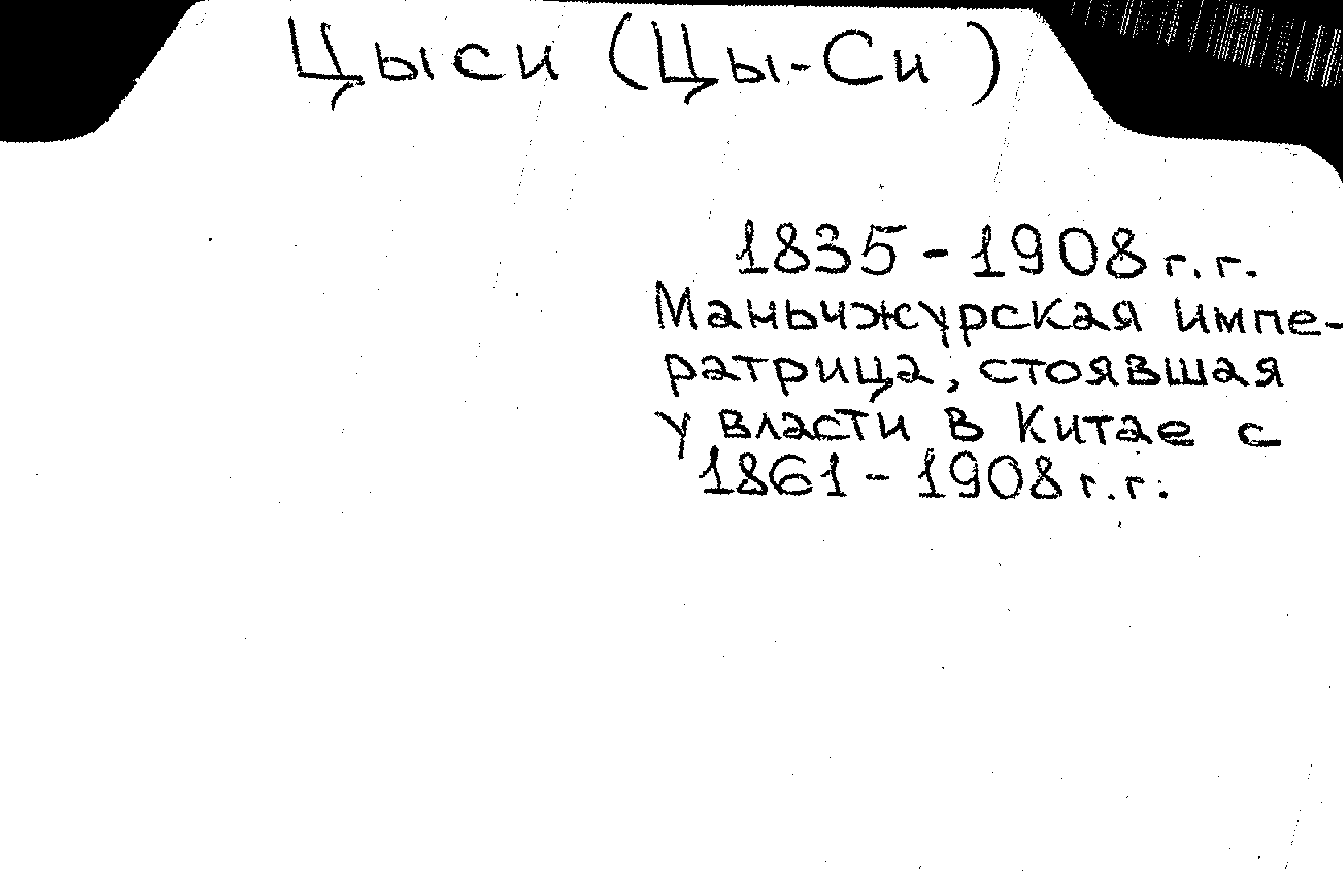 Цыси (Цы-Си)
1835 - 1908 г.г.
Маньчжурская импе-
ратрица, стоявшая
у власти в Китае с
1861 - 1908 г.г.